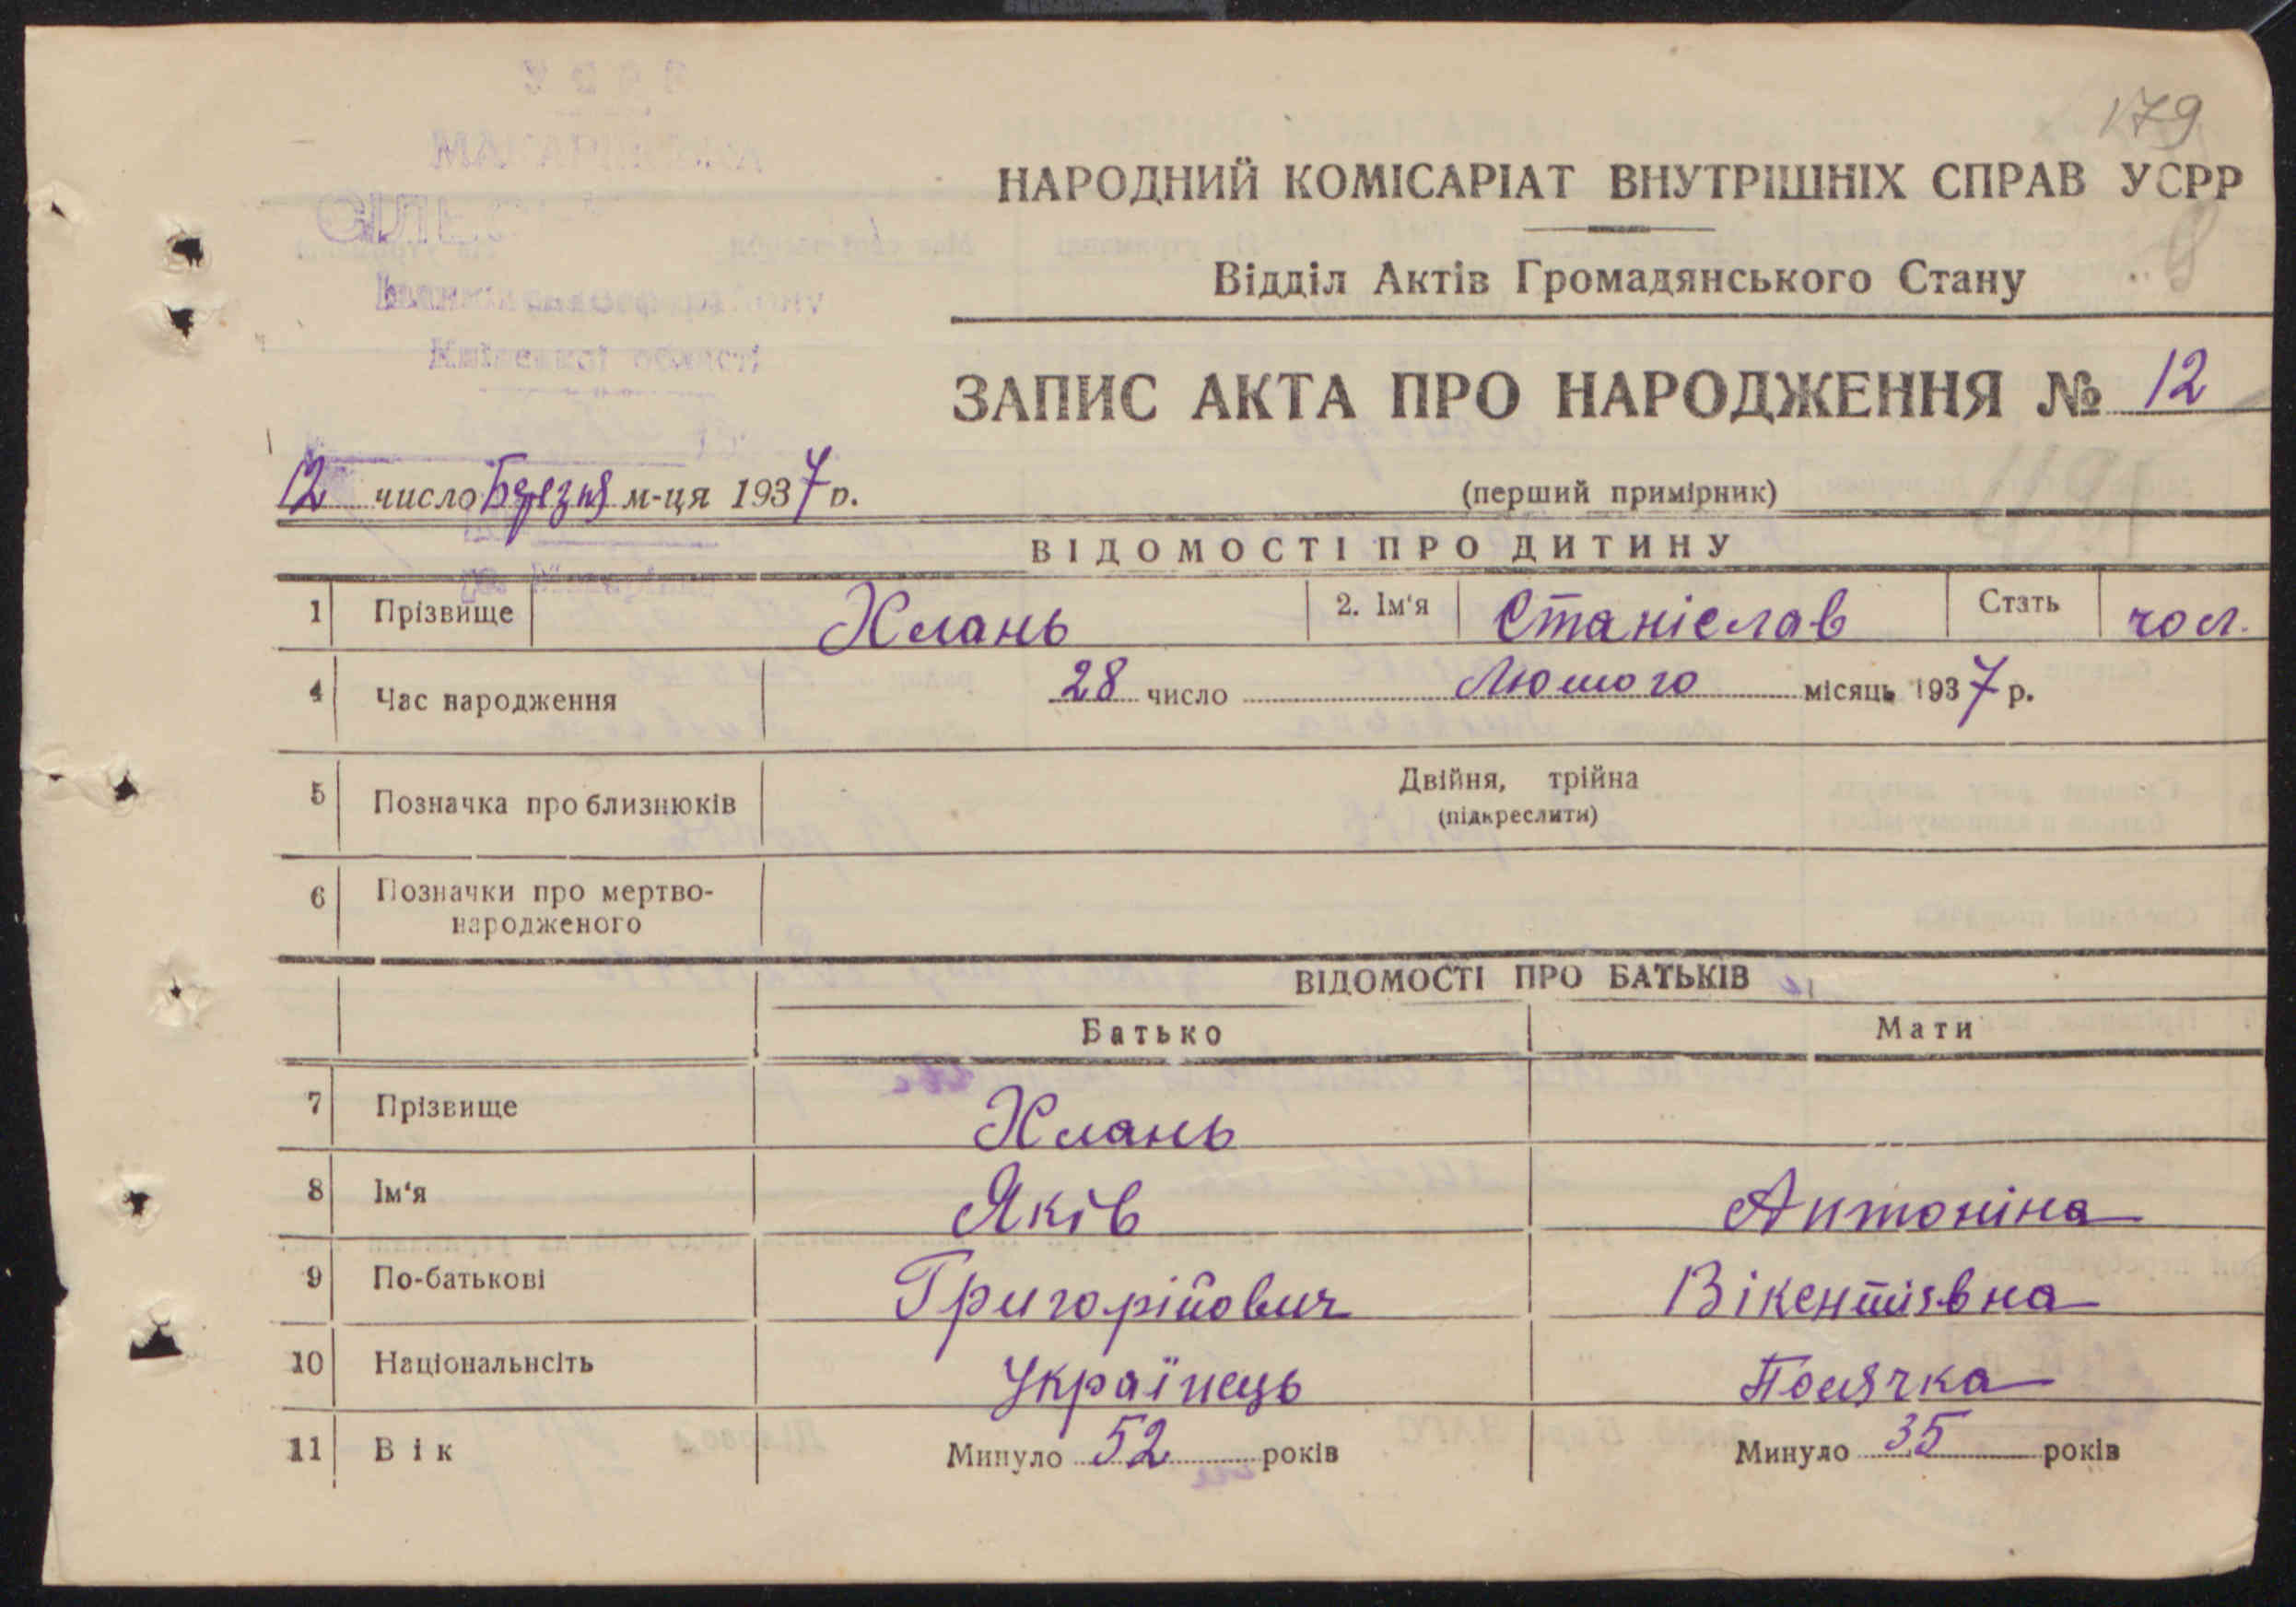 179
НАРОДНИЙ КОМІСАРІАТ ВНУТРІШНІХ СПРАВ УСРР
Відділ Актів Громадянського Стану
ЗАПИС АКТА ПРО НАРОДЖЕННЯ № 12
12 число Березня м-ця 1937 р.
(перший примірник)
ВІДОМОСТІ ПРО ДИТИНУ
1 Прізвище Хлань 2. Ім'я Станіслав Стать чол.
4 Час народження 28 число Лютого місяць 1937 р.
5 Позначка про близнюків Двійня, трійна
(підкреслити)
6 Позначки про мертво-
народженого
ВІДОМОСТІ ПРО БАТЬКІВ
Батько Мати
7 Прізвище Хлань
8 Ім'я Яків Антоніна
9 По-батькові Григорійович Вікентієвна
10 Національнсіть Українець Полячка
11 Вік Минуло 52 років Минуло 35 років